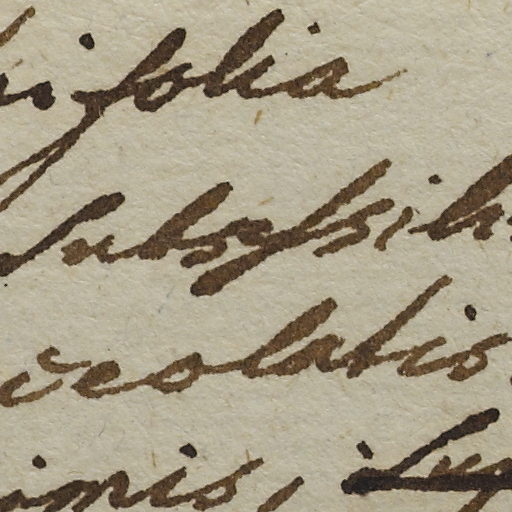 ifolia
Subsessili
ceolatis
omis, Sup